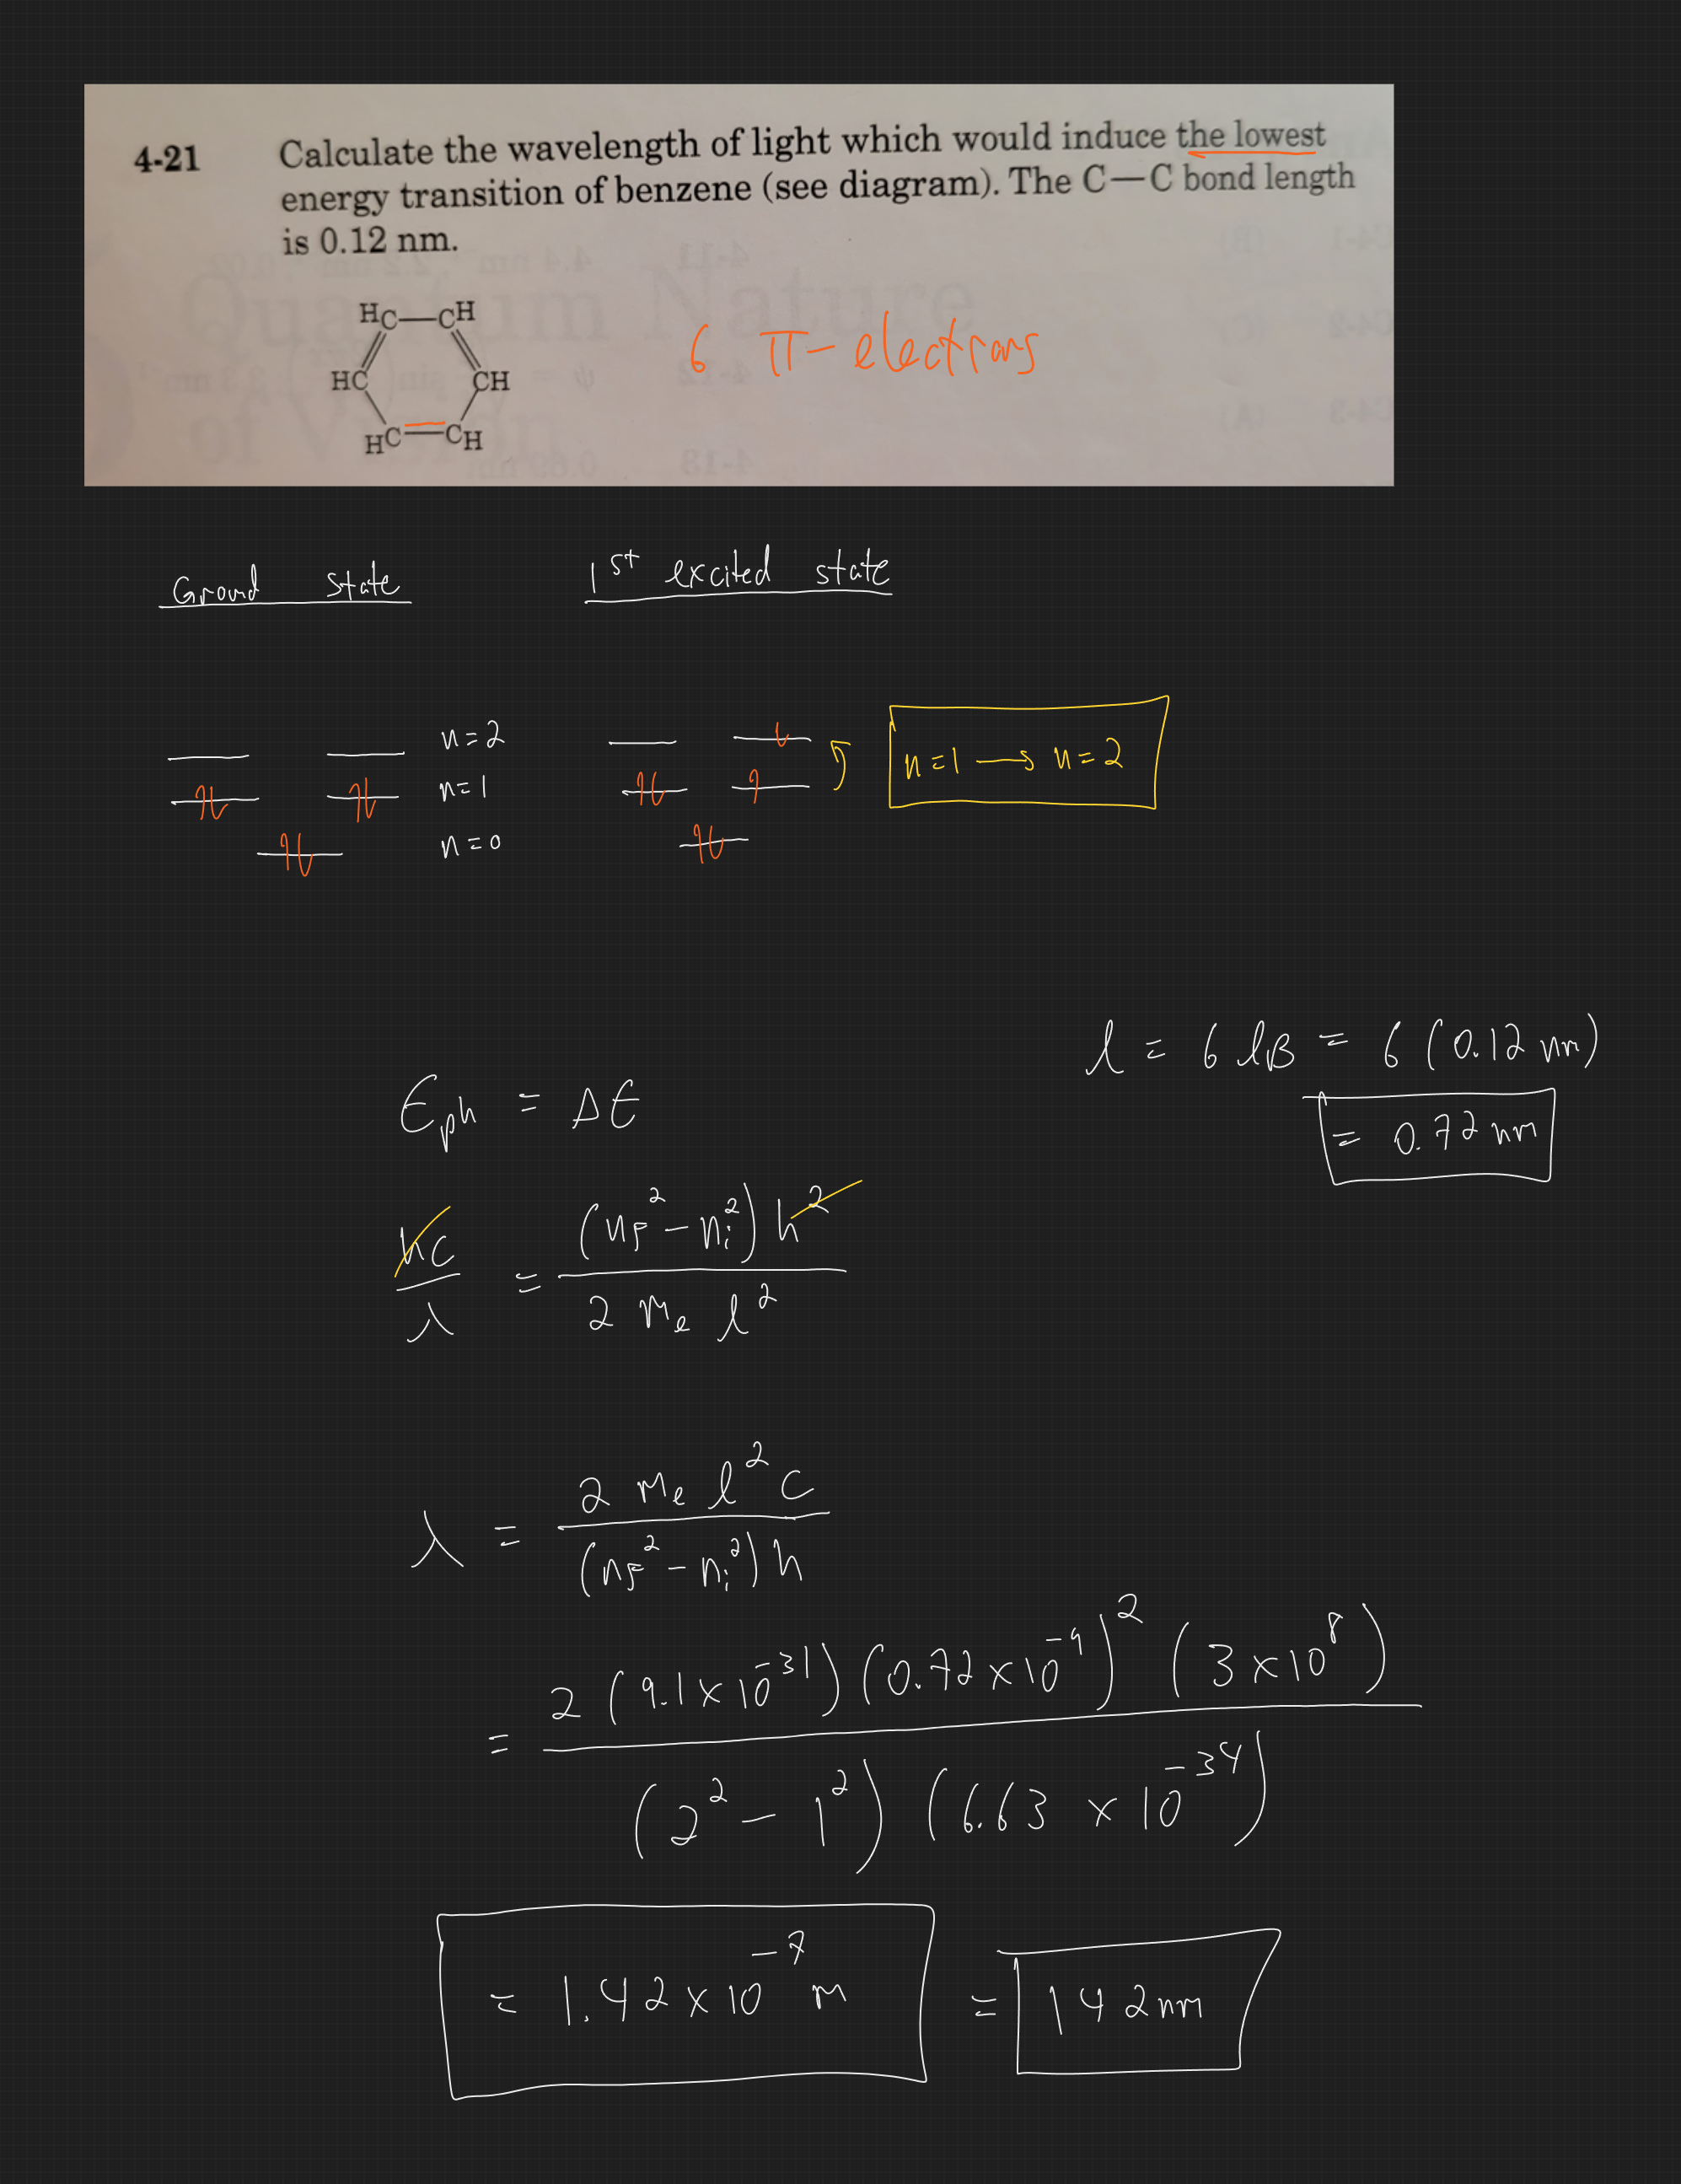 4-21 Calculate the wavelength of light which would induce the lowest
energy transition of benzene (see diagram). The C—C bond length
is 0.12 nm.
HC—CH
HC CH
HC=CH
6 π-electrons
Ground state 1st excited state
n=2
n=1
n=0
n=1 → n=2
l = 6 lB = 6 (0.12 nm)
= 0.72 nm
Eph = ΔE
hc/λ = (nf² - ni²) h² / 2 me l²
λ = 2 me l² c / (nf² - ni²) h
= 2 (9.1 x 10⁻³¹) (0.72 x 10⁻⁹)² (3 x 10⁸) / (2² - 1²) (6.63 x 10⁻³⁴)
= 1.42 x 10⁻⁷ m = 142 nm